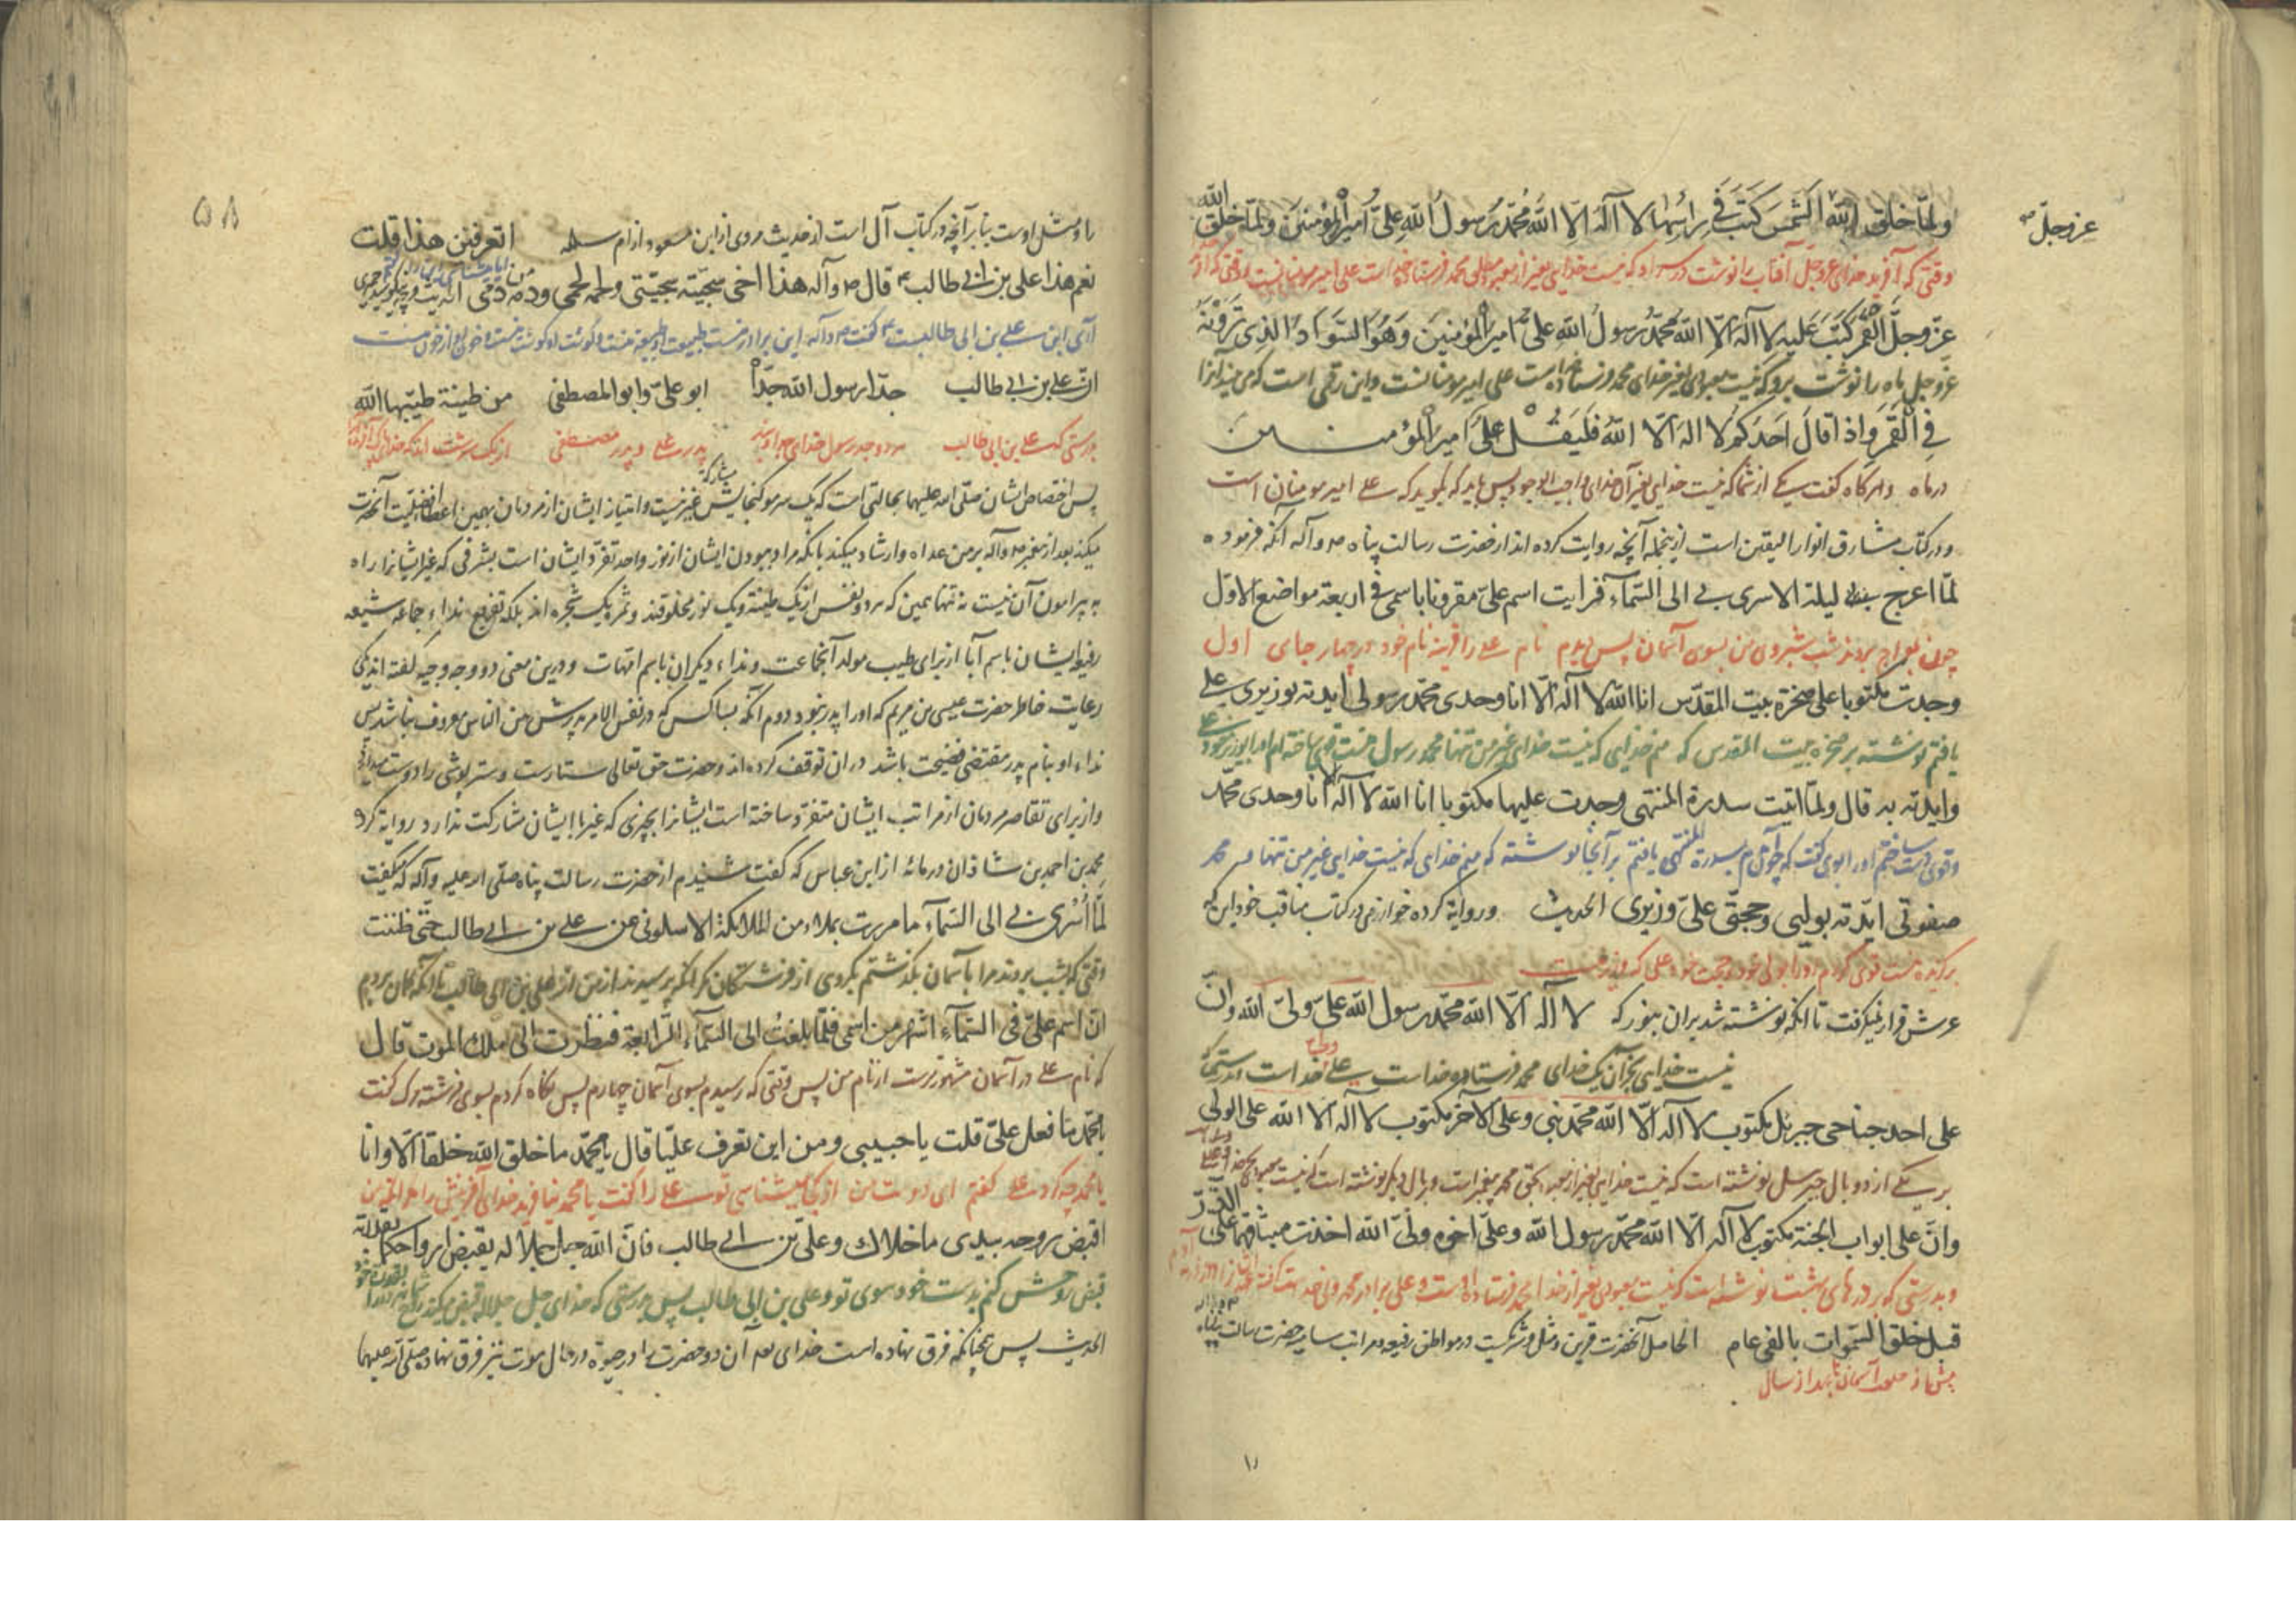 ولمّا خلق الله الشّمس كتب في راسها لا اله الّا الله محمّد رسول الله عليّ امير المؤمنين ولمّا خلق الله
عزّ وجلّ
وقتی که آفرید خدای عزوجل آفتاب را نوشت در سر او که نیست خدایی بغیر از محمد فرستاده خداست علی امیر مومنانست
عزّ وجلّ القمر كتب عليه لا اله الّا الله محمّد رسول الله عليّ امير المؤمنين وهو السّواد الّذي ترونه
عزوجل ماه را نوشت برو که نیست معبودی بغیر خدای محمد فرستاده است علی امیر مومنانست و این رقمی است که می بینید آنرا
في القمر واذا قال احدكم لا اله الّا الله فليقل عليّ امير المؤمنين
در ماه و هرگاه گفت یکی از شما که نیست خدایی بغیر آن خدای واجب الوجود پس باید که بگوید که علی امیر مومنان است
و در کتاب مشارق انوار الیقین است از ینجمله آنچه روایت کرده اند از حضرت رسالت پناه ص و آله آنکه فرموده
لمّا اعرج بي ليلة الاسرى بي الى السّماء فرايت اسم عليّ مقرونا باسمي في اربعة مواضع الاوّل
چون بمعراج بردند شب شبروی من بسوی آسمان پس دیدم نام علی را قرینه نام خود در چهار جای اول
وجدت مكتوبا على صخرة بيت المقدّس انا الله لا اله الّا انا وحدي محمّد رسولي ايدته بوزيري علي
یافتم نوشته بر صخره بیت المقدس که منم خدایی که نیست خدای غیر من تنها محمد رسول منست قوی ساخته ام او را بوزیر خود علی
وايدته به قال ولمّا اتيت سدرة المنتهى وجدت عليها مكتوبا انا الله لا اله الّا انا وحدي محمد
یافتم بر آنجا نوشته که منم خدای که نیست خدایی غیر من تنها محمد
صفوتي ايّدته بوليي وحجتي عليّ وزيري الحديث و روایة کرده خوارزمی در کتاب مناقب خود این که
برگزیده منست قوی کردم او را بولی خود و حجت خود علی که وزیر منست
عرش قرار نمیگرفت تا آنکه نوشته شد بران بنور که لا اله الّا الله محمّد رسول الله عليّ وليّ الله وانّ
نیست خدایی بجز آن یک خدای محمد فرستاده خداست علی ولی خداست
على احد جناحي جبرئل مكتوب لا اله الّا الله محمّد نبي وعلى الآخر مكتوب لا اله الّا الله علي الولي
بر یکی از دو بال جبرئیل نوشته است که نیست خدایی بغیر از محمد پیغمبر است و بر بال دیگر نوشته است که نیست
وانّ على ابواب الجنّة مكتوب لا اله الّا الله محمّد رسول الله وعليّ اخوه وليّ الله اخذت ميثاقهما على الذرّ
و بدرستی که بر درهای بهشت نوشته است که نیست معبودی بغیر از خدا محمد فرستاده اوست و علی برادر محمد ولی خداست
قبل خلق السّموات بالفي عام الحاصل آنحضرت قرین و مثل و شریکست در مواطن رفیعه و مراتب سامیه حضرت رسالت پناه
پیش از خلق آسمان
٥٨
را و مثل اوست بنا بر آنچه در کتاب آل است از حدیث مروی از ابن مسعود از ام سلمه اتعرفين هذا قلت
نعم هذا علي بن ابي طالب قال ص وآله هذا اخي سجيّته سجيّتي ولحمه لحمي ودمه دمي
آری این علی بن ابی طالبست گفت ص و آله این برادر منست طبیعت او طبیعة منست و گوشت او گوشت منست و خون او از خون منست
انّ علي بن ابي طالب جدّا رسول الله جدّاه ابو عليّ وابو المصطفى من طينة طيّبها الله
بدرستی که علی بن ابی طالب هر دو جد رسول خدای پدر علی و پدر مصطفی از یک سرشت اند
پس اختصاص ایشان صلّی الله علیهما بحالتی است که یک سر مو گنجایش مشارکة غیر نیست و امتیاز ایشان از مردمان بهمین اعطا افضلیّت آنحضرت
میکند بعد از پیغمبر ص و آله بر من عداه و ارشاد میکند بانکه مراد ببودن ایشان از نور واحد تفرد ایشان است بشرفی که غیر ایشانرا راه
به پیرامون آن نیست نه تنها همین که هر دو نفس از یک طینة و یک نور مخلوقند و ثمره یک شجره اند بلکه تفریع نداء جماعه شیعه
رفیع ایشان باسم آبا از برای طیب مولد آنجماعت و نداء دیگران باسم امّهات و درین معنی دو وجه وجیه گفته اند یکی
رعایت خاطر حضرت عیسی بن مریم که او را پدر نبود دوم آنکه بسا کس که در نفس الامر پدرش من الناس معروف نباشد پس
نداء او بنام پدر مقتضی فضیحت باشد در ان توقف کرده اند و حضرت حق تعالی ستارست و ستر پوشی را دوست میدارد
و از برای تقاصر مردمان از مراتب ایشان متفرد ساخته است ایشانرا بچیزی که غیر با ایشان مشارکت ندارد روایة کرده
محمد بن احمد بن شاذان در مائه از ابن عباس که گفت شنیدم از حضرت رسالت پناه صلّی الله علیه و آله که میگفت
لمّا اُسْرِيَ بي الى السّماء ما مررت بملاء من الملائكة الا سئلوني عن علي بن ابي طالب حتّى ظننت
وقتی که بشب بردند مرا بآسمان بگذشتم بگروهی از فرشتگان مگر آنکه پرسیدند از من از علی بن ابی طالب تا آنکه گمان بردم
انّ اسم عليّ في السّماء اشهر من اسمي فلمّا بلغت الى السّماء الرّابعة فنظرت الى ملك الموت قال
که نام علی در آسمان مشهورترست از نام من پس وقتی که رسیدم بسوی آسمان چهارم پس نگاه کردم بسوی فرشته مرگ گفت
يا محمّد ما فعل عليّ قلت يا حبيبي ومن اين تعرف عليّا قال يا محمّد ما خلق الله خلقا الّا وانا
یا محمد چه کرد علی گفتم ای دوست من از کجا میشناسی تو علی را گفت یا محمد نیافرید خدای آفرینش را
اقبض روحه بيدي ما خلاك وعليّ بن ابي طالب فانّ الله جلّ جلاله يقبض ارواحكما بقدرته
قبض روحش کنم بدست خود سوی تو و علی بن ابی طالب پس بدرستی که خدای جل جلاله قبض میکند
الحدیث پس چنانکه فرق نهاده است خدای آن دو حضرت را در حیوة در حال موت نیز فرق نهاده صلّی الله علیهما